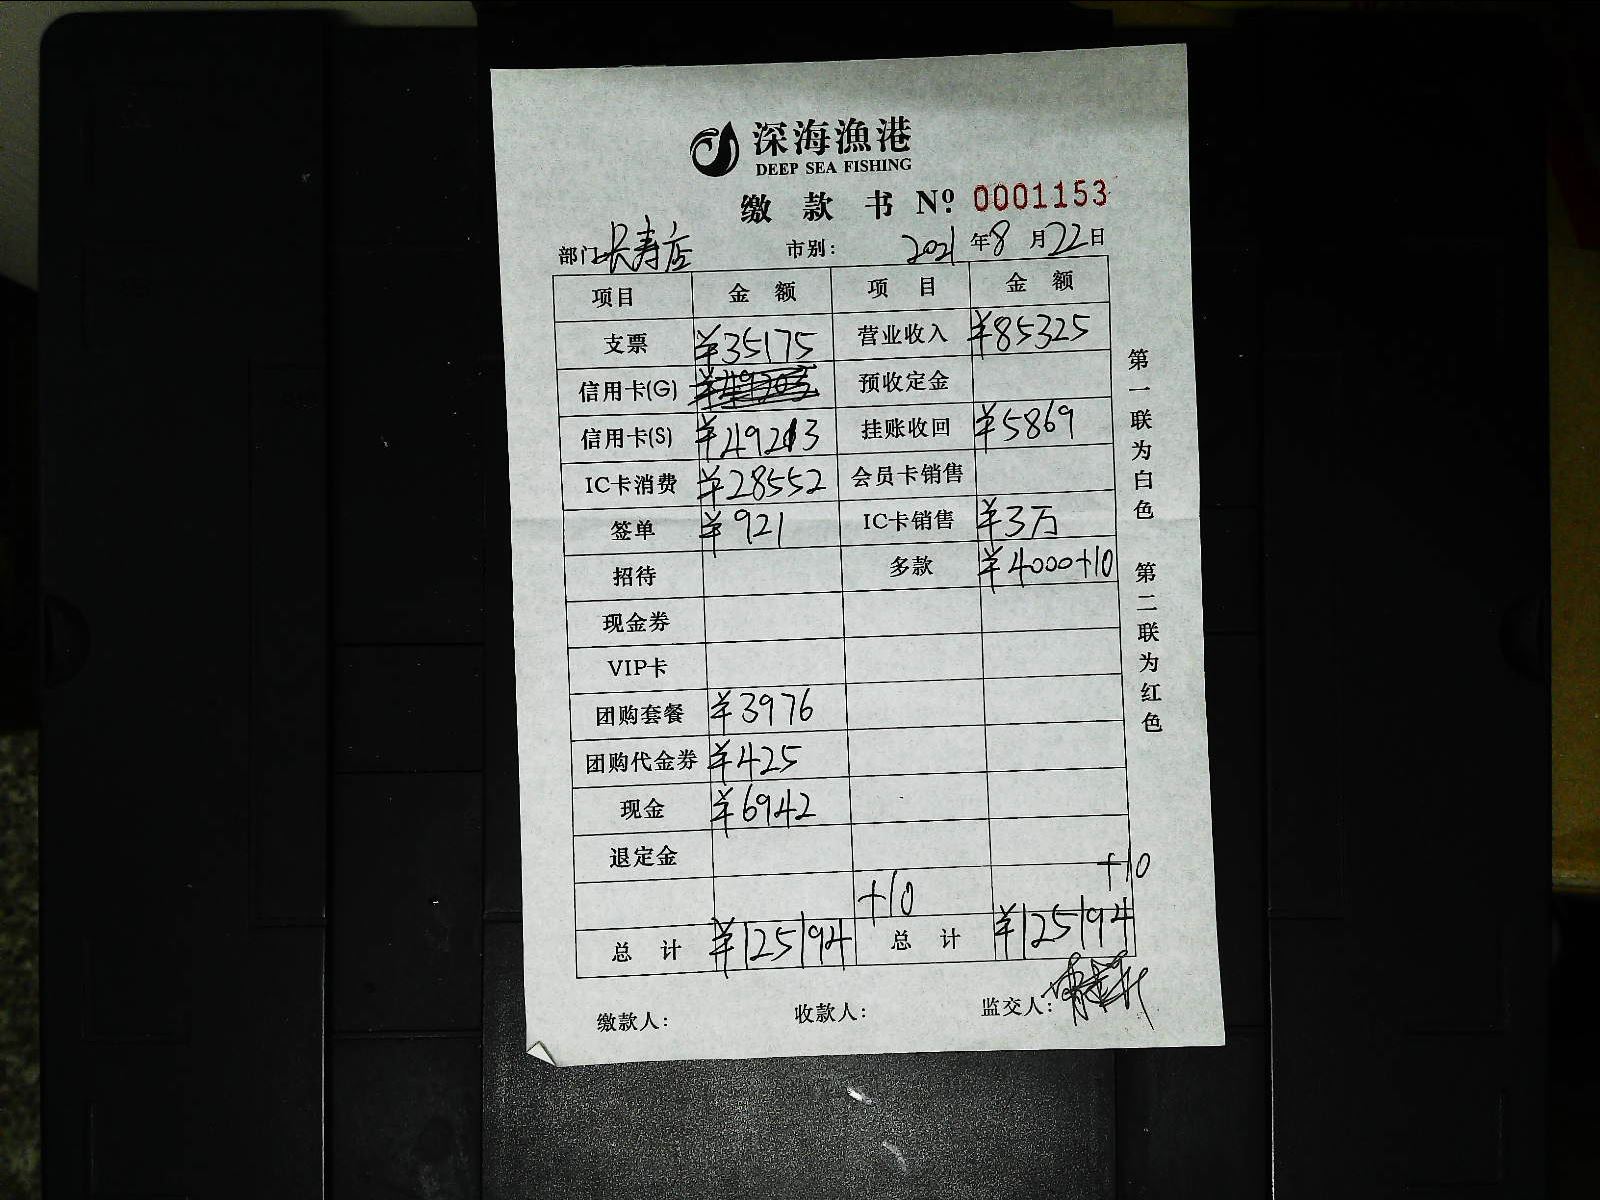 深海渔港
DEEP SEA FISHING
缴款书 Nº: 0001153
部门: 长寿店 市别: 2021年8月22日
项目 金额 项目 金额
支票 ¥35175 营业收入 ¥85325
信用卡(G) 预收定金
信用卡(S) ¥49213 挂账收回 ¥5869
IC卡消费 ¥28552 会员卡销售
签单 ¥921 IC卡销售 ¥3万
招待 多款 ¥4000+10
现金券
VIP卡
团购套餐 ¥3976
团购代金券 ¥425
现金 ¥6942
退定金
+10 +10
总计 ¥125194 总计 ¥125194
缴款人: 收款人: 监交人:
第一联为白色 第二联为红色